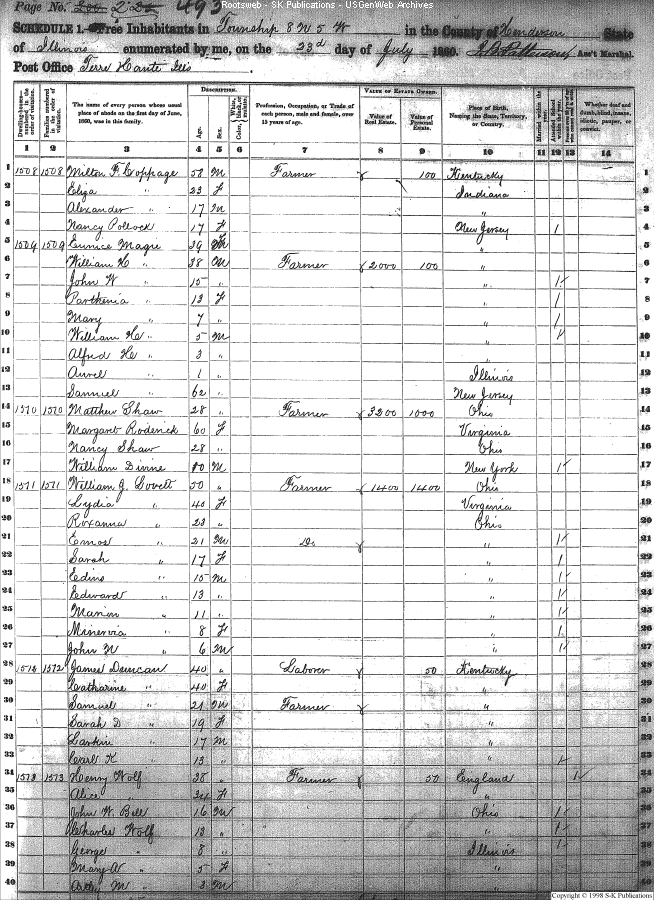 Rootsweb - SK Publications - USGenWeb Archives
Page No. 493
SCHEDULE 1.—Free Inhabitants in Township 8 N 5 W in the County of Henderson State
of Illinois enumerated by me, on the 23d day of July 1860. Ass't Marshal.
Post Office Terre Haute Ills
Dwelling-houses—numbered in the order of visitation.
Families numbered in the order of visitation.
The name of every person whose usual place of abode on the first day of June, 1860, was in this family.
DESCRIPTION.
Age.
Sex.
Color, White, black, or mulatto.
Profession, Occupation, or Trade of each person, male and female, over 15 years of age.
VALUE OF ESTATE OWNED.
Value of Real Estate.
Value of Personal Estate.
Place of Birth, Naming the State, Territory, or Country.
Married within the year.
Attended School within the year.
Whether deaf and dumb, blind, insane, idiotic, pauper, or convict.
1 2 3 4 5 6 7 8 9 10 11 12 13 14
1 1508 1508 Milton P. Coppage 58 M Farmer 100 Kentucky 1
2 Eliza " 23 f Indiana 2
3 Alexander " 17 M " 3
4 Nancy Pollock 17 f New Jersey 1 4
5 1509 1509 Eunice Magie 39 " 5
6 William H " 38 M Farmer 2000 100 " 6
7 John W " 15 " " 1 7
8 Parthenia " 13 f " 1 8
9 Mary " 7 " " 1 9
10 William He " 5 M " 1 10
11 Alfred He " 3 " " 11
12 " 1 " Illinois 12
13 Samuel " 62 " New Jersey 13
14 1510 1510 Matthew Shaw 28 " Farmer 3200 1000 Ohio 14
15 Margaret Roderick 60 f Virginia 15
16 Nancy Shaw 28 " Ohio 16
17 William Divine 80 M New York 1 17
18 1511 1511 William G. Lovett 50 " Farmer 1400 1400 Ohio 18
19 Lydia " 40 f Virginia 19
20 Roxanna " 23 " Ohio 20
21 Emos " 21 M Do " 1 21
22 Sarah " 17 f " 1 22
23 Edins " 15 M " 1 23
24 Edward " 13 " " 1 24
25 Marion " 11 " " 1 25
26 Minervia " 8 f " 1 26
27 John M " 6 M " 1 27
28 1512 1512 James Duncan 40 " Laborer 50 Kentucky 28
29 Catharine " 40 f " 29
30 Samuel " 21 M Farmer " 30
31 Sarah D " 19 f " 31
32 Larkin " 17 M " 32
33 Carl K " 13 " " 1 33
34 1513 1513 Henry Wolf 38 " Farmer 50 England 1 34
35 Alice " 34 f " 35
36 John W. Bell 16 M Ohio 1 36
37 Charles Wolf 13 " " 1 37
38 George " 8 " Illinois 1 38
39 Mary A " 5 f " 39
40 M " 3 M " 40
Copyright © 1998 S-K Publications